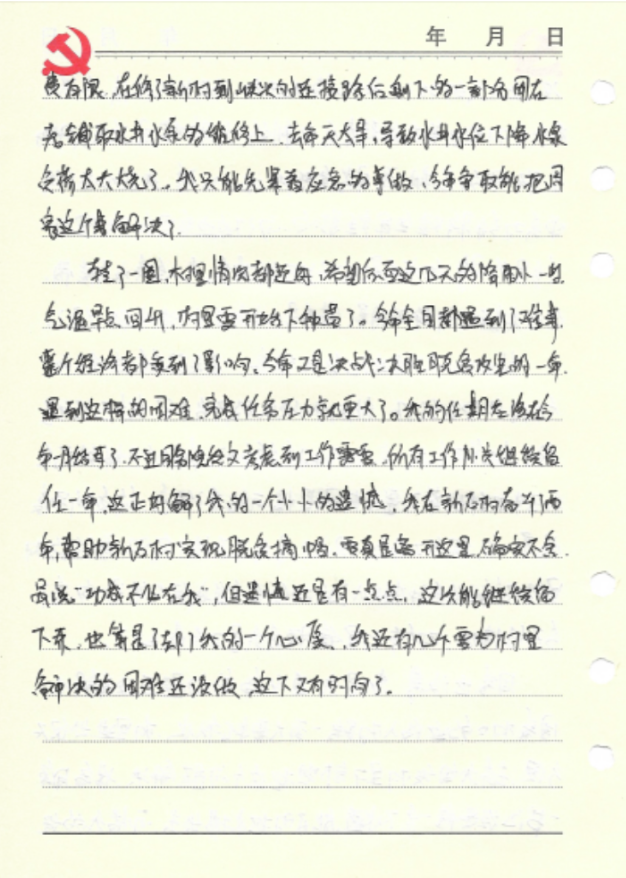 年 月 日
费有限,在修了新村到 的连接路后剩下的一部分用在
店铺取水井水泵的维修上,去年天大旱,导致水井水位下降水泵
负荷太大烧了。我只能先罩着应急的事做,今年争取能把困
窘这个事解决了。
转了一圈,村里情况都还好,希望 这几天的降雨小一些
气温早点回升,村里要开始下种苗了。今年全国都遇到了疫情
整个经济都受到了影响。今年又是决战决胜脱贫攻坚的一年,
遇到这样的困难,完成任务压力就更大了。我的任期应该在今
年 月结束了,不过 考虑到工作需要,所有工作队员继续留
任一年,这正好解了我的一个小小的遗憾,我在新 村奋斗两
年,帮助新 村实现脱贫摘帽,要真是离开这里,确实不舍。
虽说"功成不必在我",但遗憾还是有一点点,这次能继续留
下来,也算是了却了我的一个心愿,我还有几个要为村里
解决的困难还没做,这下又有时间了。